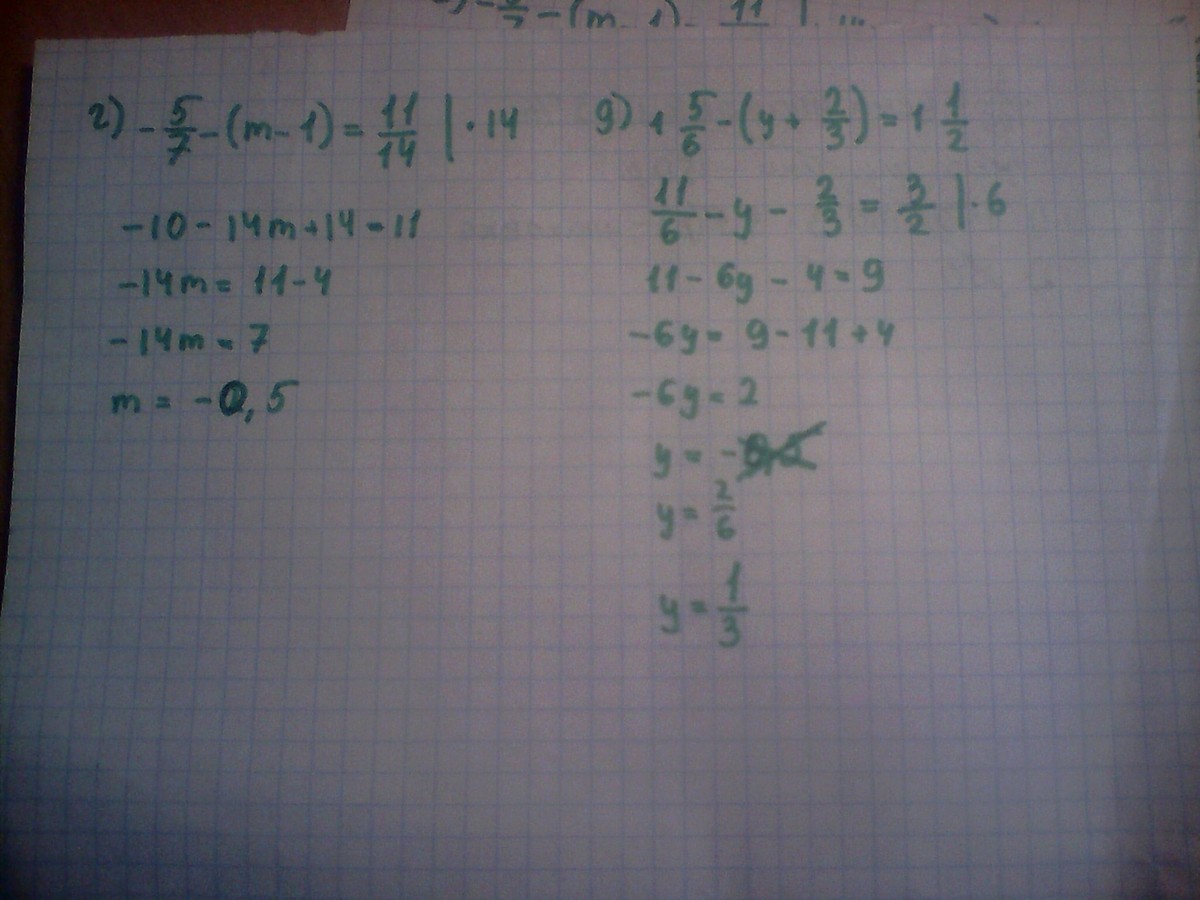 г) -5/7 - (m - 1) = 11/14 | · 14
-10 - 14m + 14 = 11
-14m = 11 - 4
-14m = 7
m = -0,5
д) 1 5/6 - (y + 2/3) = 1 1/2
11/6 - y - 2/3 = 3/2 | · 6
11 - 6y - 4 = 9
-6y = 9 - 11 + 4
-6y = 2
y = -
y = 2/6
y = 1/3